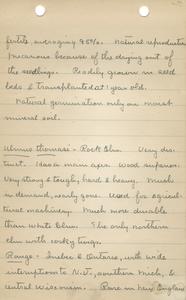 fertile, averaging 95%. Natural reproduction
precarious because of the drying out of
the seedlings. Readily grown in seed
beds & transplanted at 1 year old.
Natural germination only on moist
mineral soil.
Ulmus thomasi - Rock Elm. Very dis-
tinct. Has a main axis. Wood superior.
Very strong & tough, hard & heavy. Much
in demand, nearly gone. Used for agricul-
tural machinery. Much more durable
than White Elm. The only northern
elm with corky twigs.
Range - Quebec & Ontario, with wide
interruption to N.J., southern Mich., &
central Wisconsin. Rare in New England